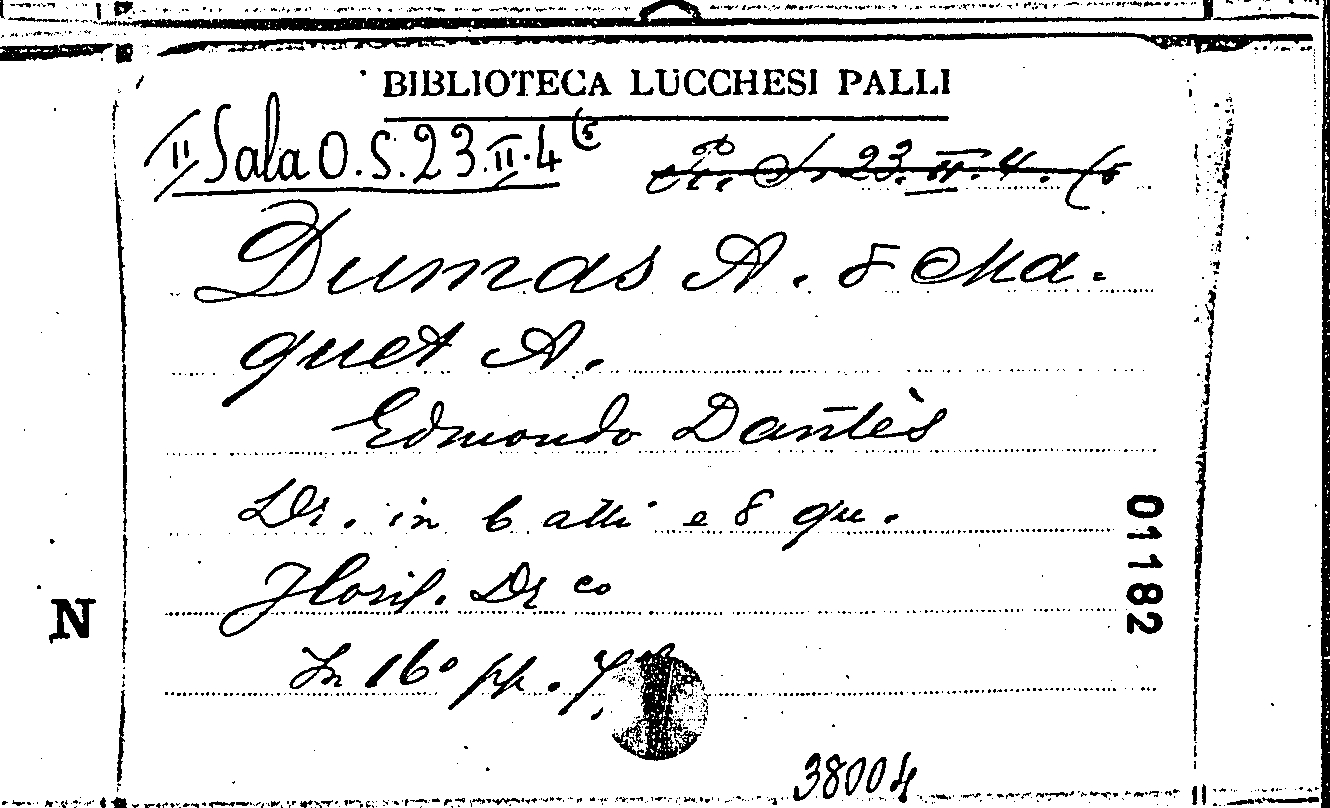 BIBLIOTECA LUCCHESI PALLI
II Sala O.S.23.II.4(5
23.II.4.(5
Dumas A. & Ma.
quet A.
Edmondo Dantès
Dr. in 6 atti e 8 qu.
Floril. Dr co
In 16° pp.
01182
N
38004